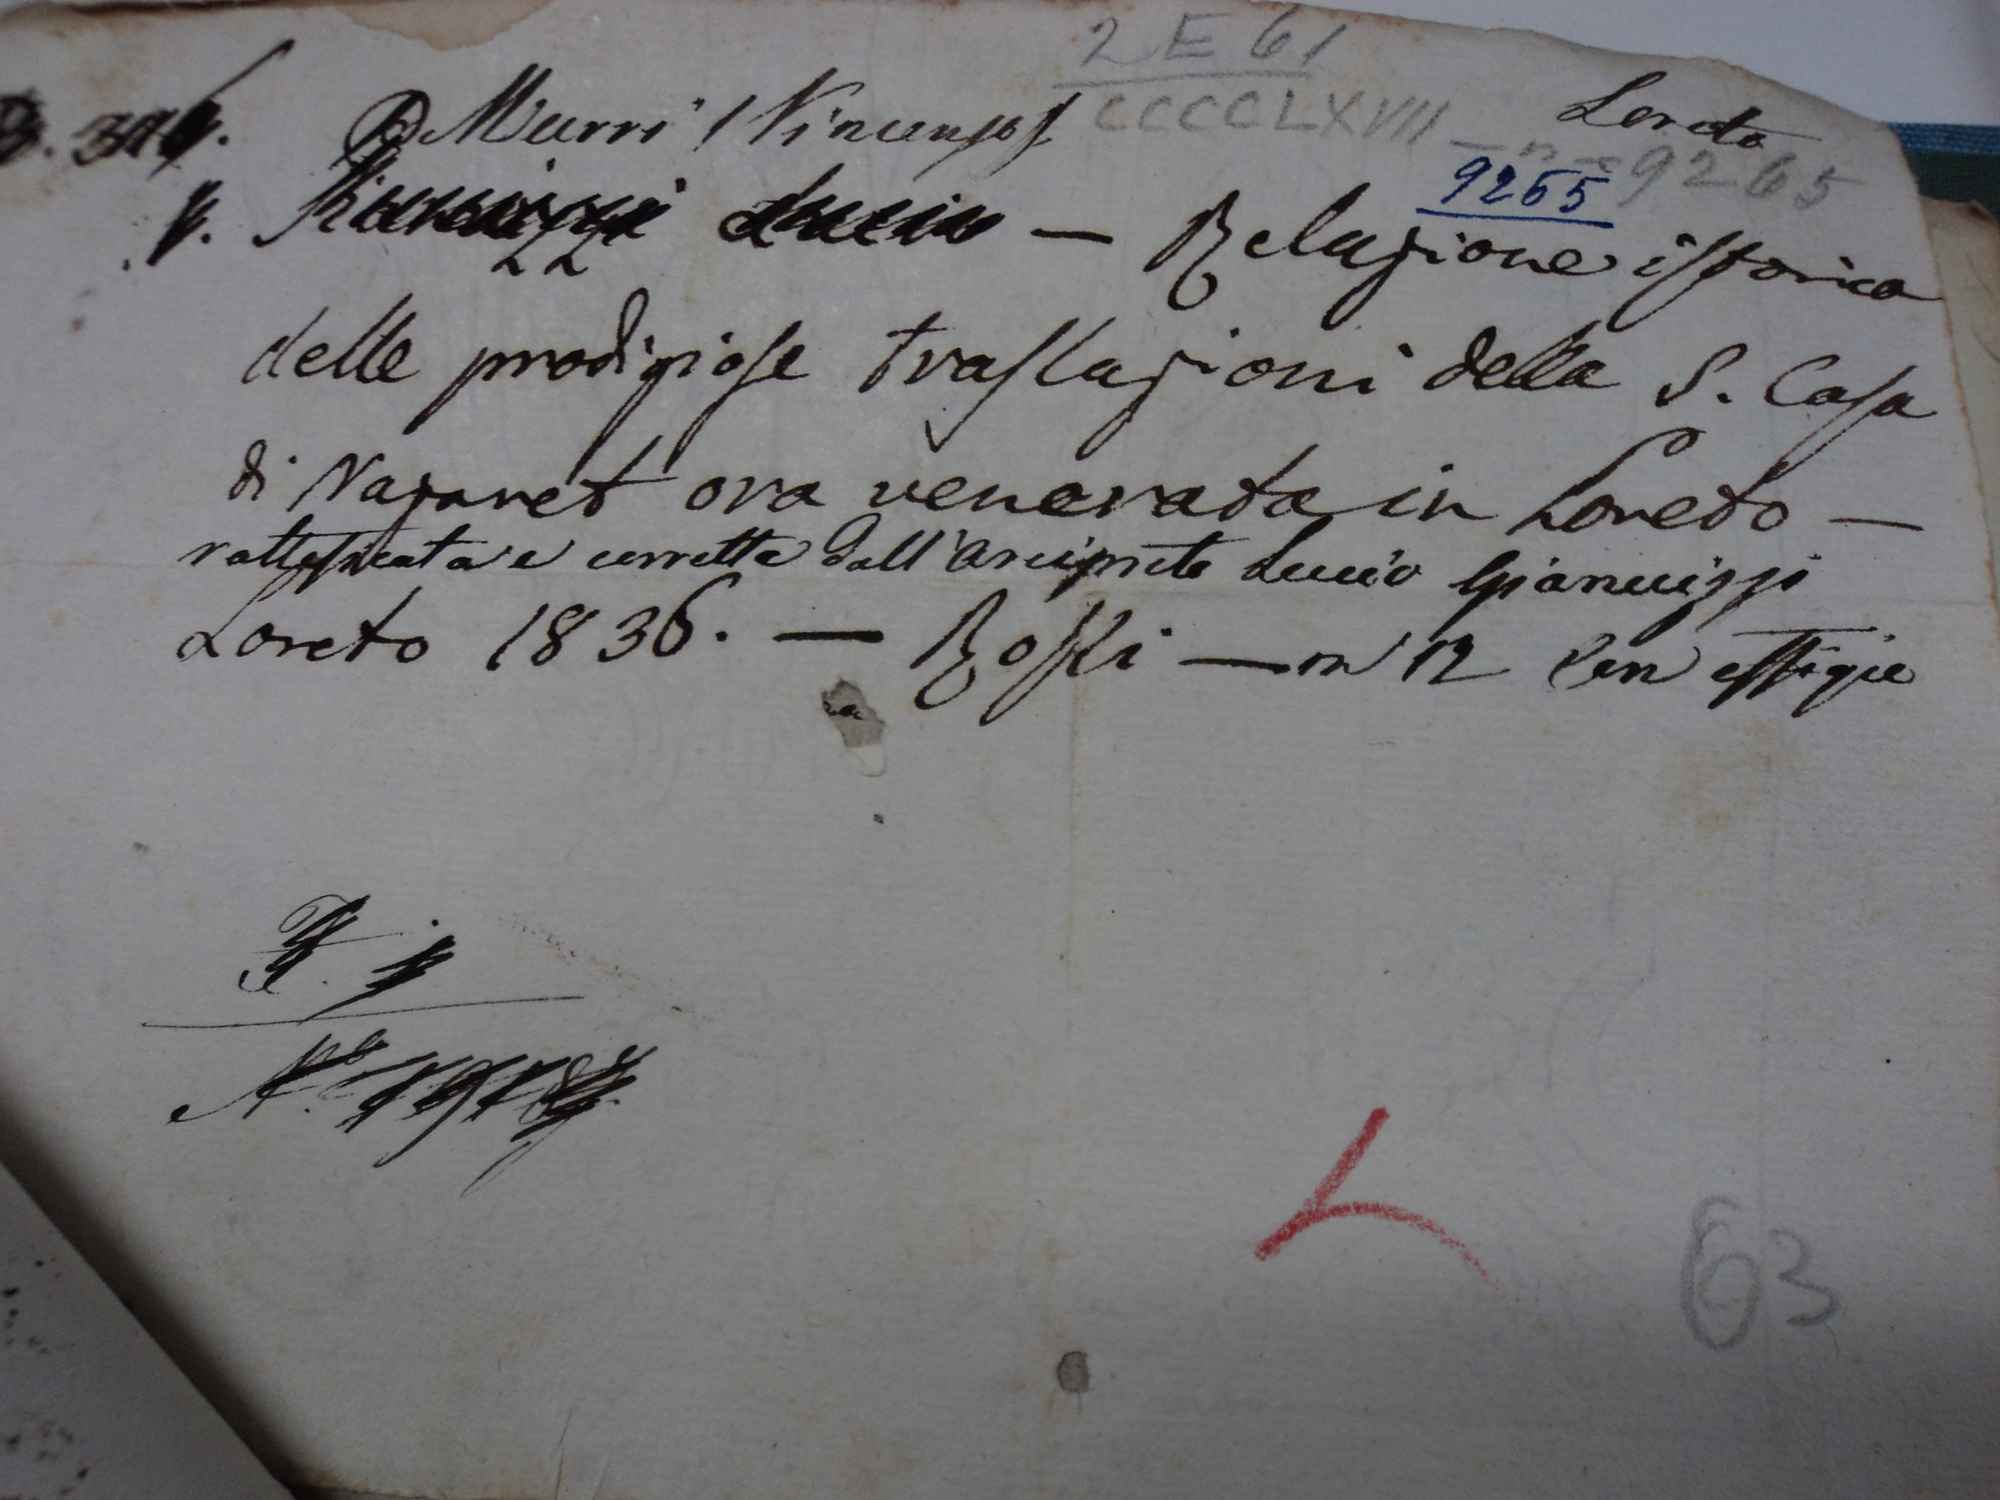 2 E 61
Murri (Vincenzo)
CCCCCLXVIII - n° 9265
Loreto
9265
— Relazione istorica
delle prodigiose traslazioni della S. Casa
di Nazaret ora venerata in Loreto —
e corretta dall'arciprete Lucio Gianuizzi
Loreto 1836. — Rossi — in 12 con effigie
63